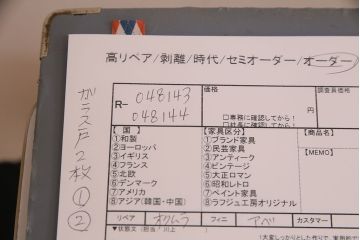 高リペア/剥離/時代/セミオーダー/オーダー
ガラス戸2枚 ① ②
R- 048143
048144
価格
円
調査員価格
□専務に確認してから!
□社長に確認してから!
【国】
①和製
②ヨーロッパ
③イギリス
④フランス
⑤北欧
⑥デンマーク
⑦アメリカ
⑧アジア(韓国・中国)
【家具区分】
①ブランド家具
②民芸家具
③アンティーク
④ビンテージ
⑤大正ロマン
⑥昭和レトロ
⑦ペイント家具
⑧ラフジュ工房オリジナル
【商品名】
【MEMO】
リペア オクムラ フィニ アベ カスタマー
▼状態文(担当/川上